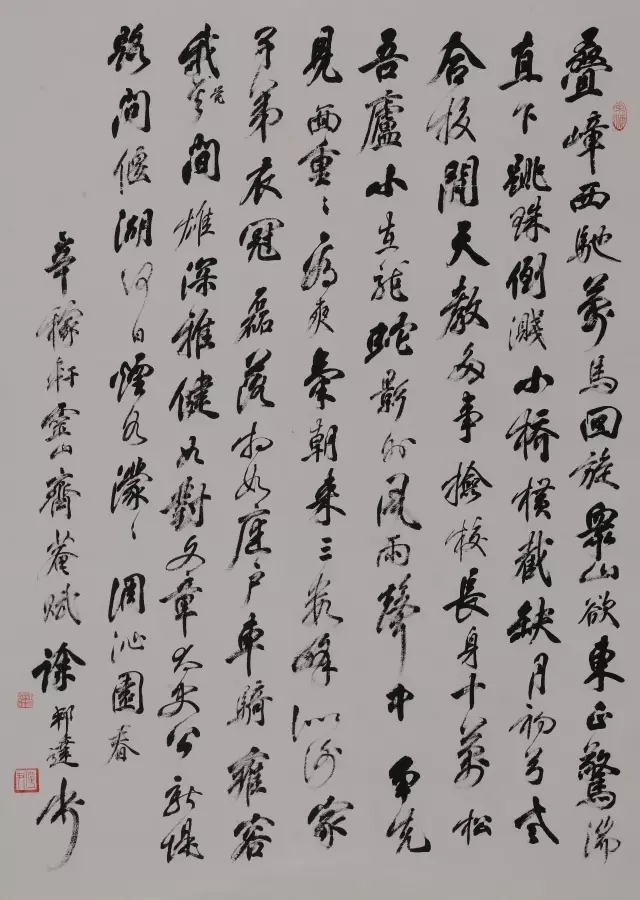 疊嶂西馳萬馬回旋眾山欲東正驚湍
直下跳珠倒濺小橋橫截缺月初弓老
合投閒天教多事檢校長身十萬松
吾廬小在龍蛇影外風雨聲中 爭先
見面重〻看爽氣朝來三數峰似謝家
子弟衣冠磊落相如庭戶車騎雍容
我覺其間雄深雅健如對文章太史公新堤
路問偃湖何日煙水濛〻 調沁園春
辛稼軒靈山齊菴賦 徐邦達書